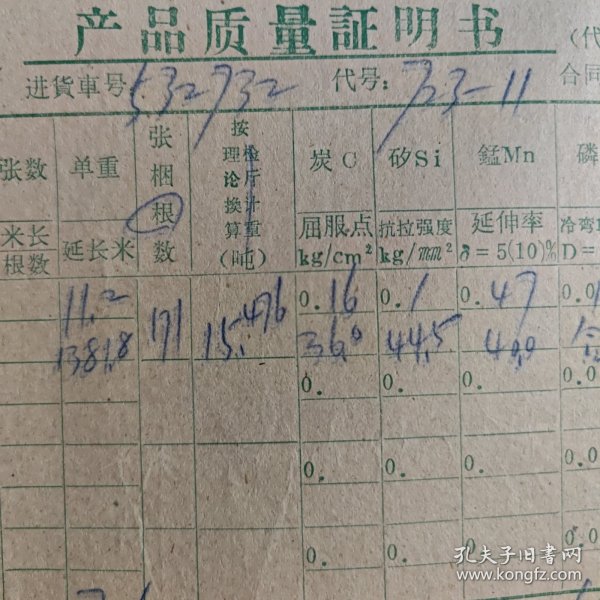 产品质量証明书
(代
进貨車号 532732 代号: 723-11 合同
张数 单重 张捆根数 按理論换算 检斤計重 (吨) 炭C 矽Si 錳Mn 磷
米长根数 延长米 屈服点 kg/cm² 抗拉强度 kg/mm² 延伸率 δ=5(10)% 冷弯 D=
11.2 171 15.476 0.16 0.1 0.47 0.0
1381.8 36.0 44.5 40.0
0. 0. 0. 0.0
0. 0. 0. 0.0
0. 0. 0. 0.0
孔夫子旧书网
www.kongfz.com